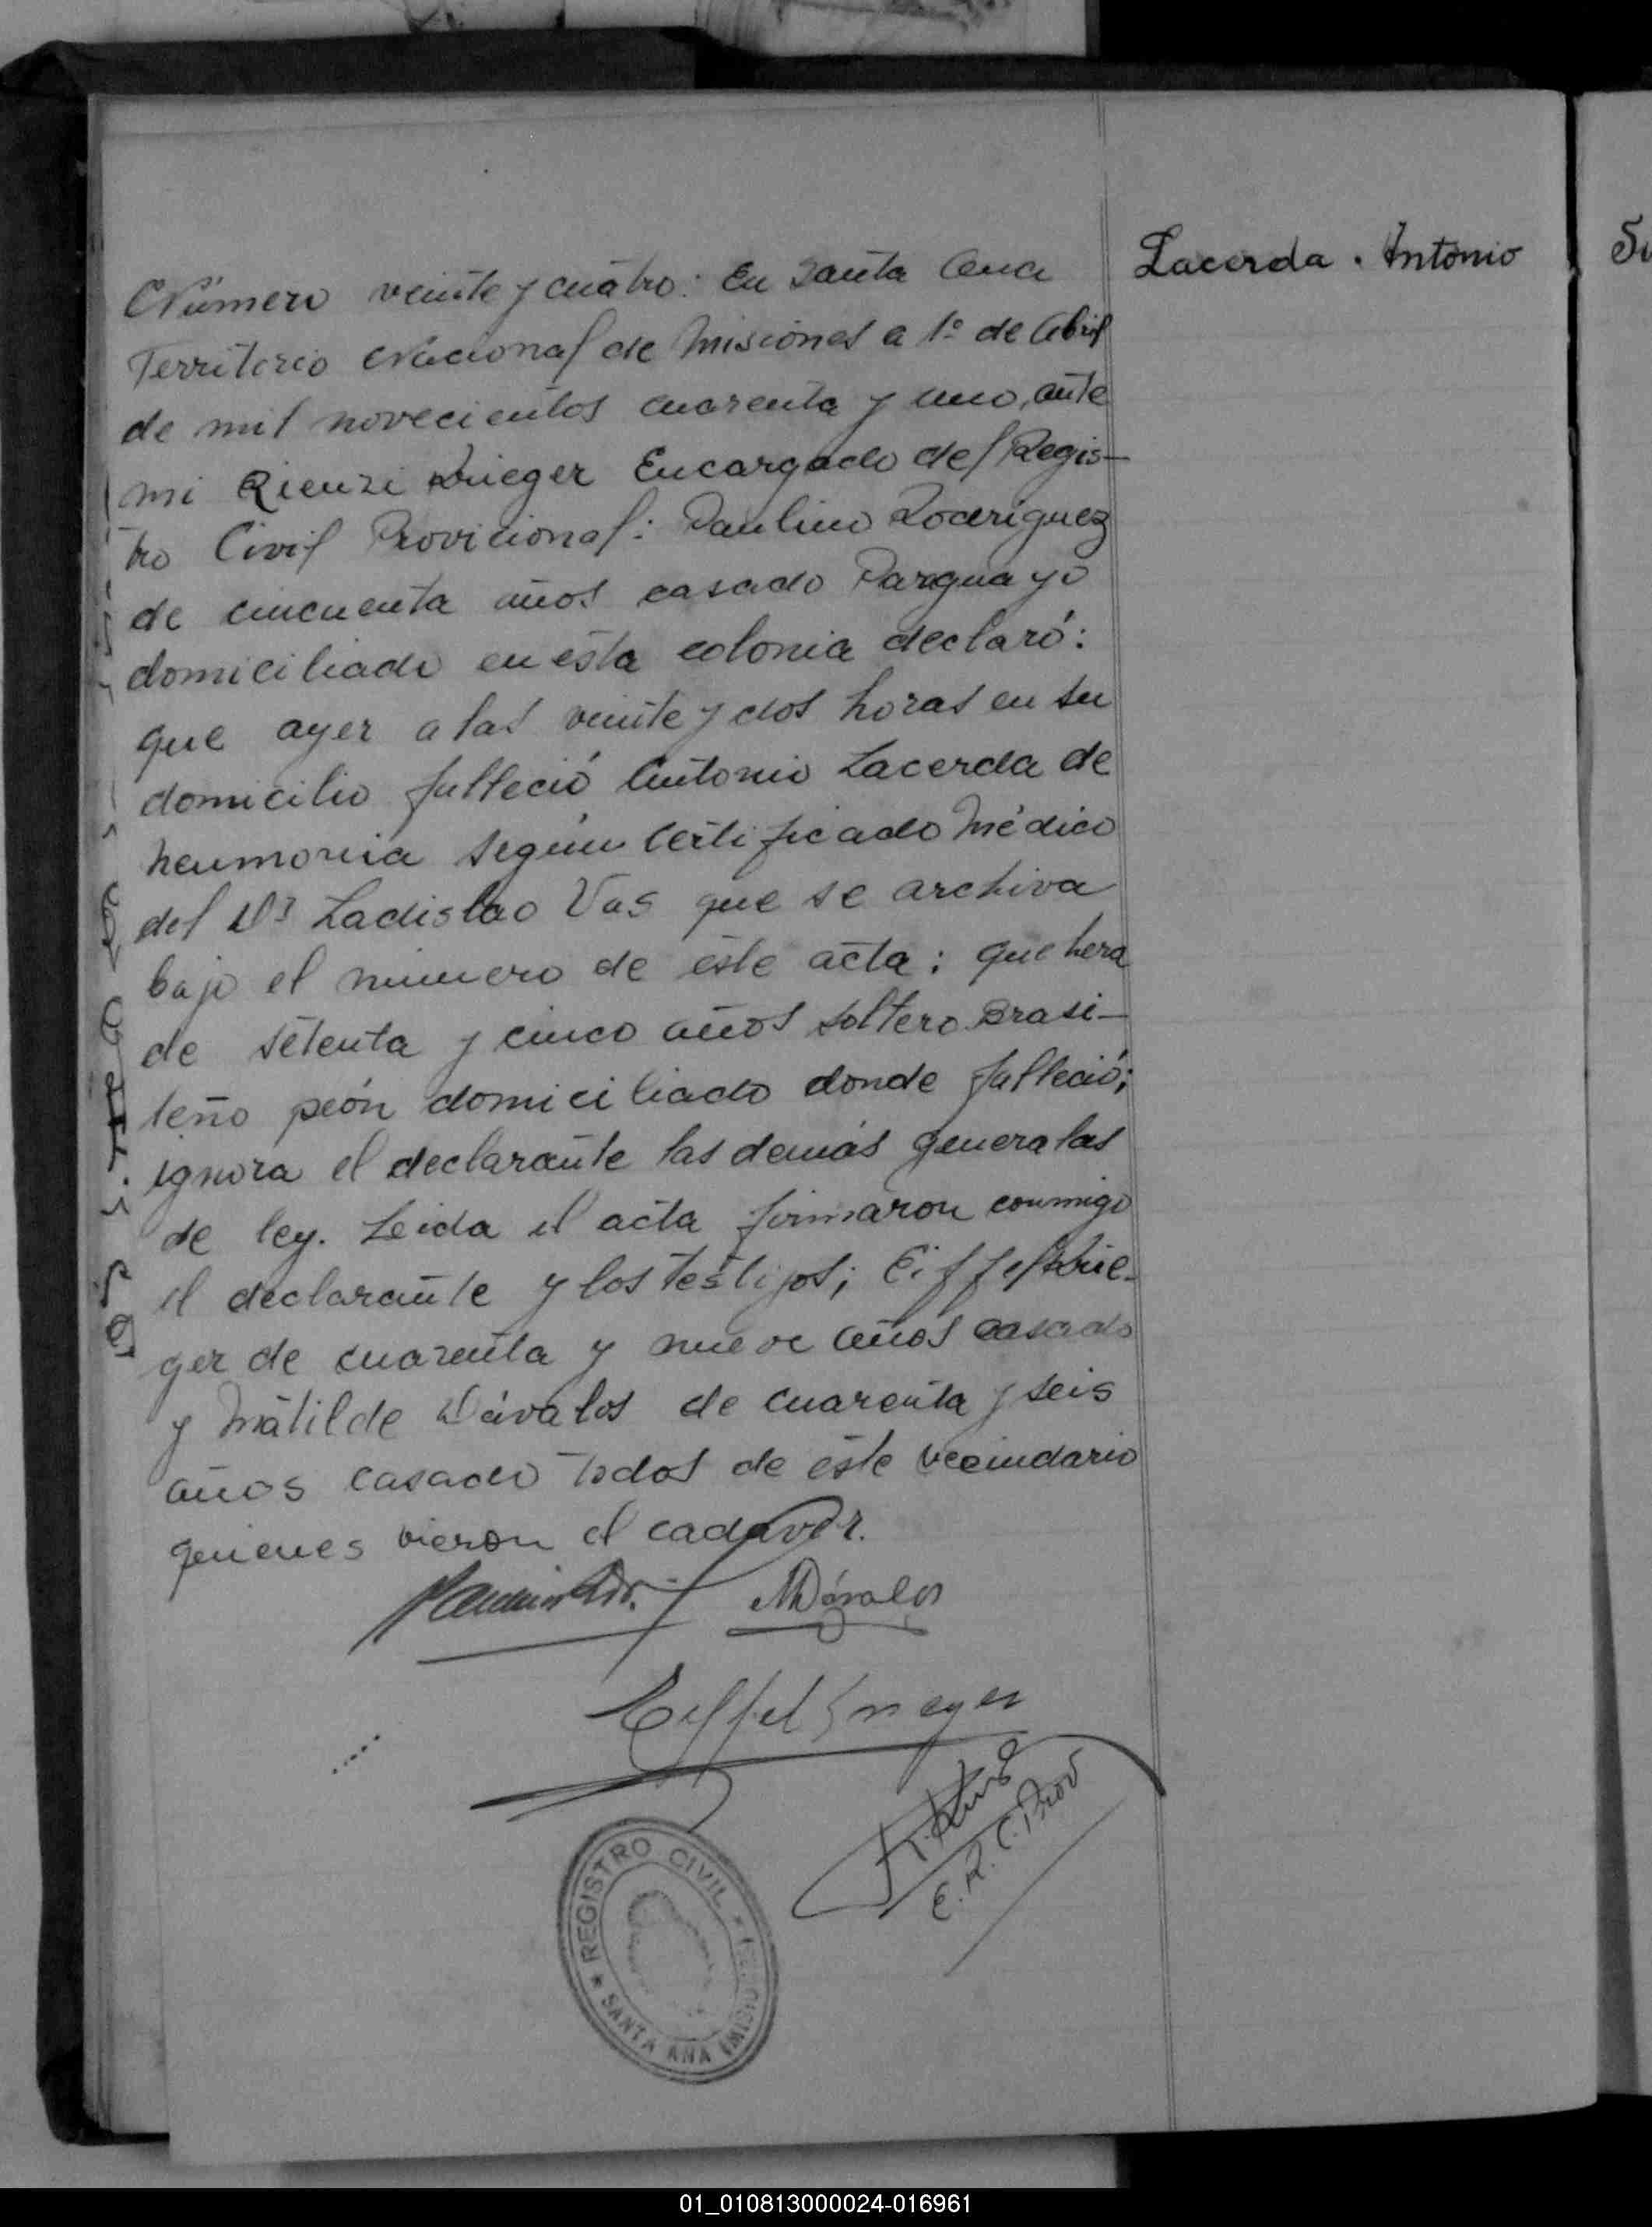 Número veinte y cuatro: En Santa Ana
Territorio Nacional de Misiones a 1º de Abril
de mil novecientos cuarenta y uno, ante
mi Rienzi Krieger Encargado del Regis-
tro Civil Provicional: Paulino Rodriguez
de cincuenta años casado Paraguayo
domiciliado en ésta colonia declaró:
que ayer a las veinte y dos horas en su
domicilio falleció Antonio Lacerda de
neumonia según Certificado Médico
del Dr Ladislao Vas que se archiva
bajo el numero de éste acta; que hera
de setenta y cinco años soltero Brasi-
leño peón domiciliado donde falleció;
ignora el declarante las demás generalas
de ley. Leida el acta firmaron conmigo
el declarante y los testigos; Eiffel Krie-
ger de cuarenta y nueve años casado
y Matilde Dávalos de cuarenta y seis
años casado todos de éste vecindario
quienes vieron el cadaver.
MDávalos
Eiffel Krieger
E.R.C.Prov
REGISTRO CIVIL
SANTA ANA (MISIONES)
Lacerda. Antonio
01_010813000024-016961